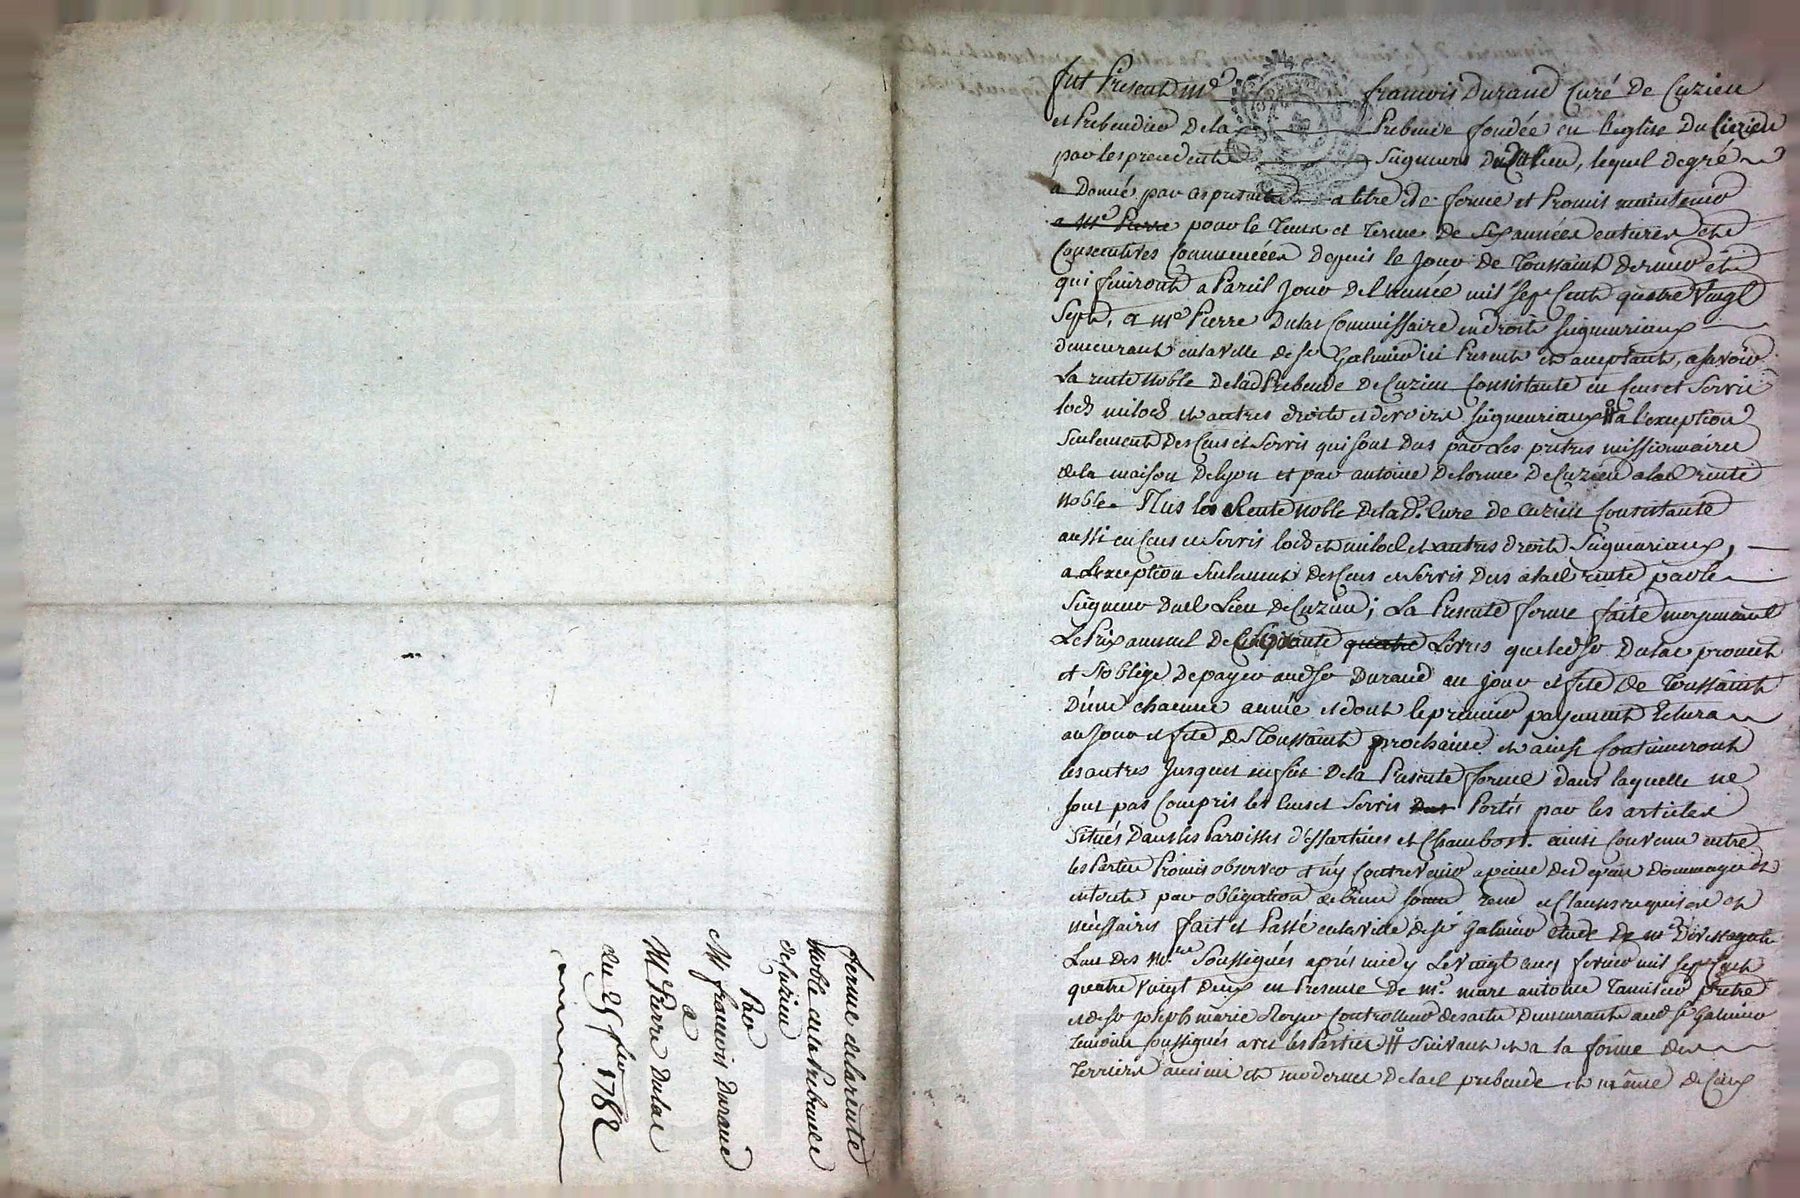 ferme de la rente
noble de la Prebende
de Cuzieu
Par
Mr francois Durand
a
Me Pierre Dulac
du 25 fer 1782
fut Present me francois Durand Curé de Cuzieu
et Prebendier de la Prebende fondée en l'eglise du Cuzieu
par les precedents Seigneurs dud lieu, lequel de gré
a donné par ces presentes a titre de ferme et Promis maintenir
a Me Pierre pour le tems et terme de six années entieres et
Consecutives Commencées depuis le jour de Toussaint dernier et
qui finiront a Pareil jour de l'année mil sept Cent quatre vingt
Sept, a me Pierre Dulac Commissaire en droits seigneuriaux
demeurant en la ville de St Galmier ici Present et acceptant, asavoir
La rente Noble de lad Prebende de Cuzieu Consistante en Cens et Servis
lods milods et autres droits et devoirs seigneuriaux # a l'exception
Seulement des Cens et Servis qui sont dus par les pretres missionnaires
de la maison de Lyon et par antoine Delorme de Cuzieu a lad rente
Noble. Plus la Rente noble de lad. Cure de Cuzieu Consistante
aussi en Cens et Servis lods et milods et autres droits Seigneuriaux,
a L'exception Seulement des Cens et Servis dus a lad rente par le
Seigneur dud Lieu de Cuzieu; La Presente ferme faite moyennant
Le Prix annuel de quatre Livres que led Sr Dulac promet
et s'oblige de payer aud Sr Durand au jour et fete de Toussaint
D'une chacune année et dont le premier payement Echera
au jour et fete de Toussaint prochaine et ainsi Continueront
les autres jusques en fin de la Presente ferme dans laquelle ne
sont pas Compris les Cens et Servis dus Portés par les articles
Situés dans les Paroisses d'Essartines et Chambost. ainsi Convenu entre
les Parties Promis observer et n'y Contrevenir a peine de depens dommages et
interets par obligation de biens soum renon et Clauses requises et
necessaires fait et Passé en la ville de St Galmier etude de me
L'un des Nres Soussignés après midy Le vingt cinq fevrier mil sept Cent
quatre vingt deux en Presence de mre marc antoine Tamisier pretre
et de Sr joseph marie Royer Controlleur des actes demeurants aud St Galmier
temoins soussignés avec les Parties # Suivant et a la forme des
Terriers anciens et modernes de lad prebende et même de Ceux